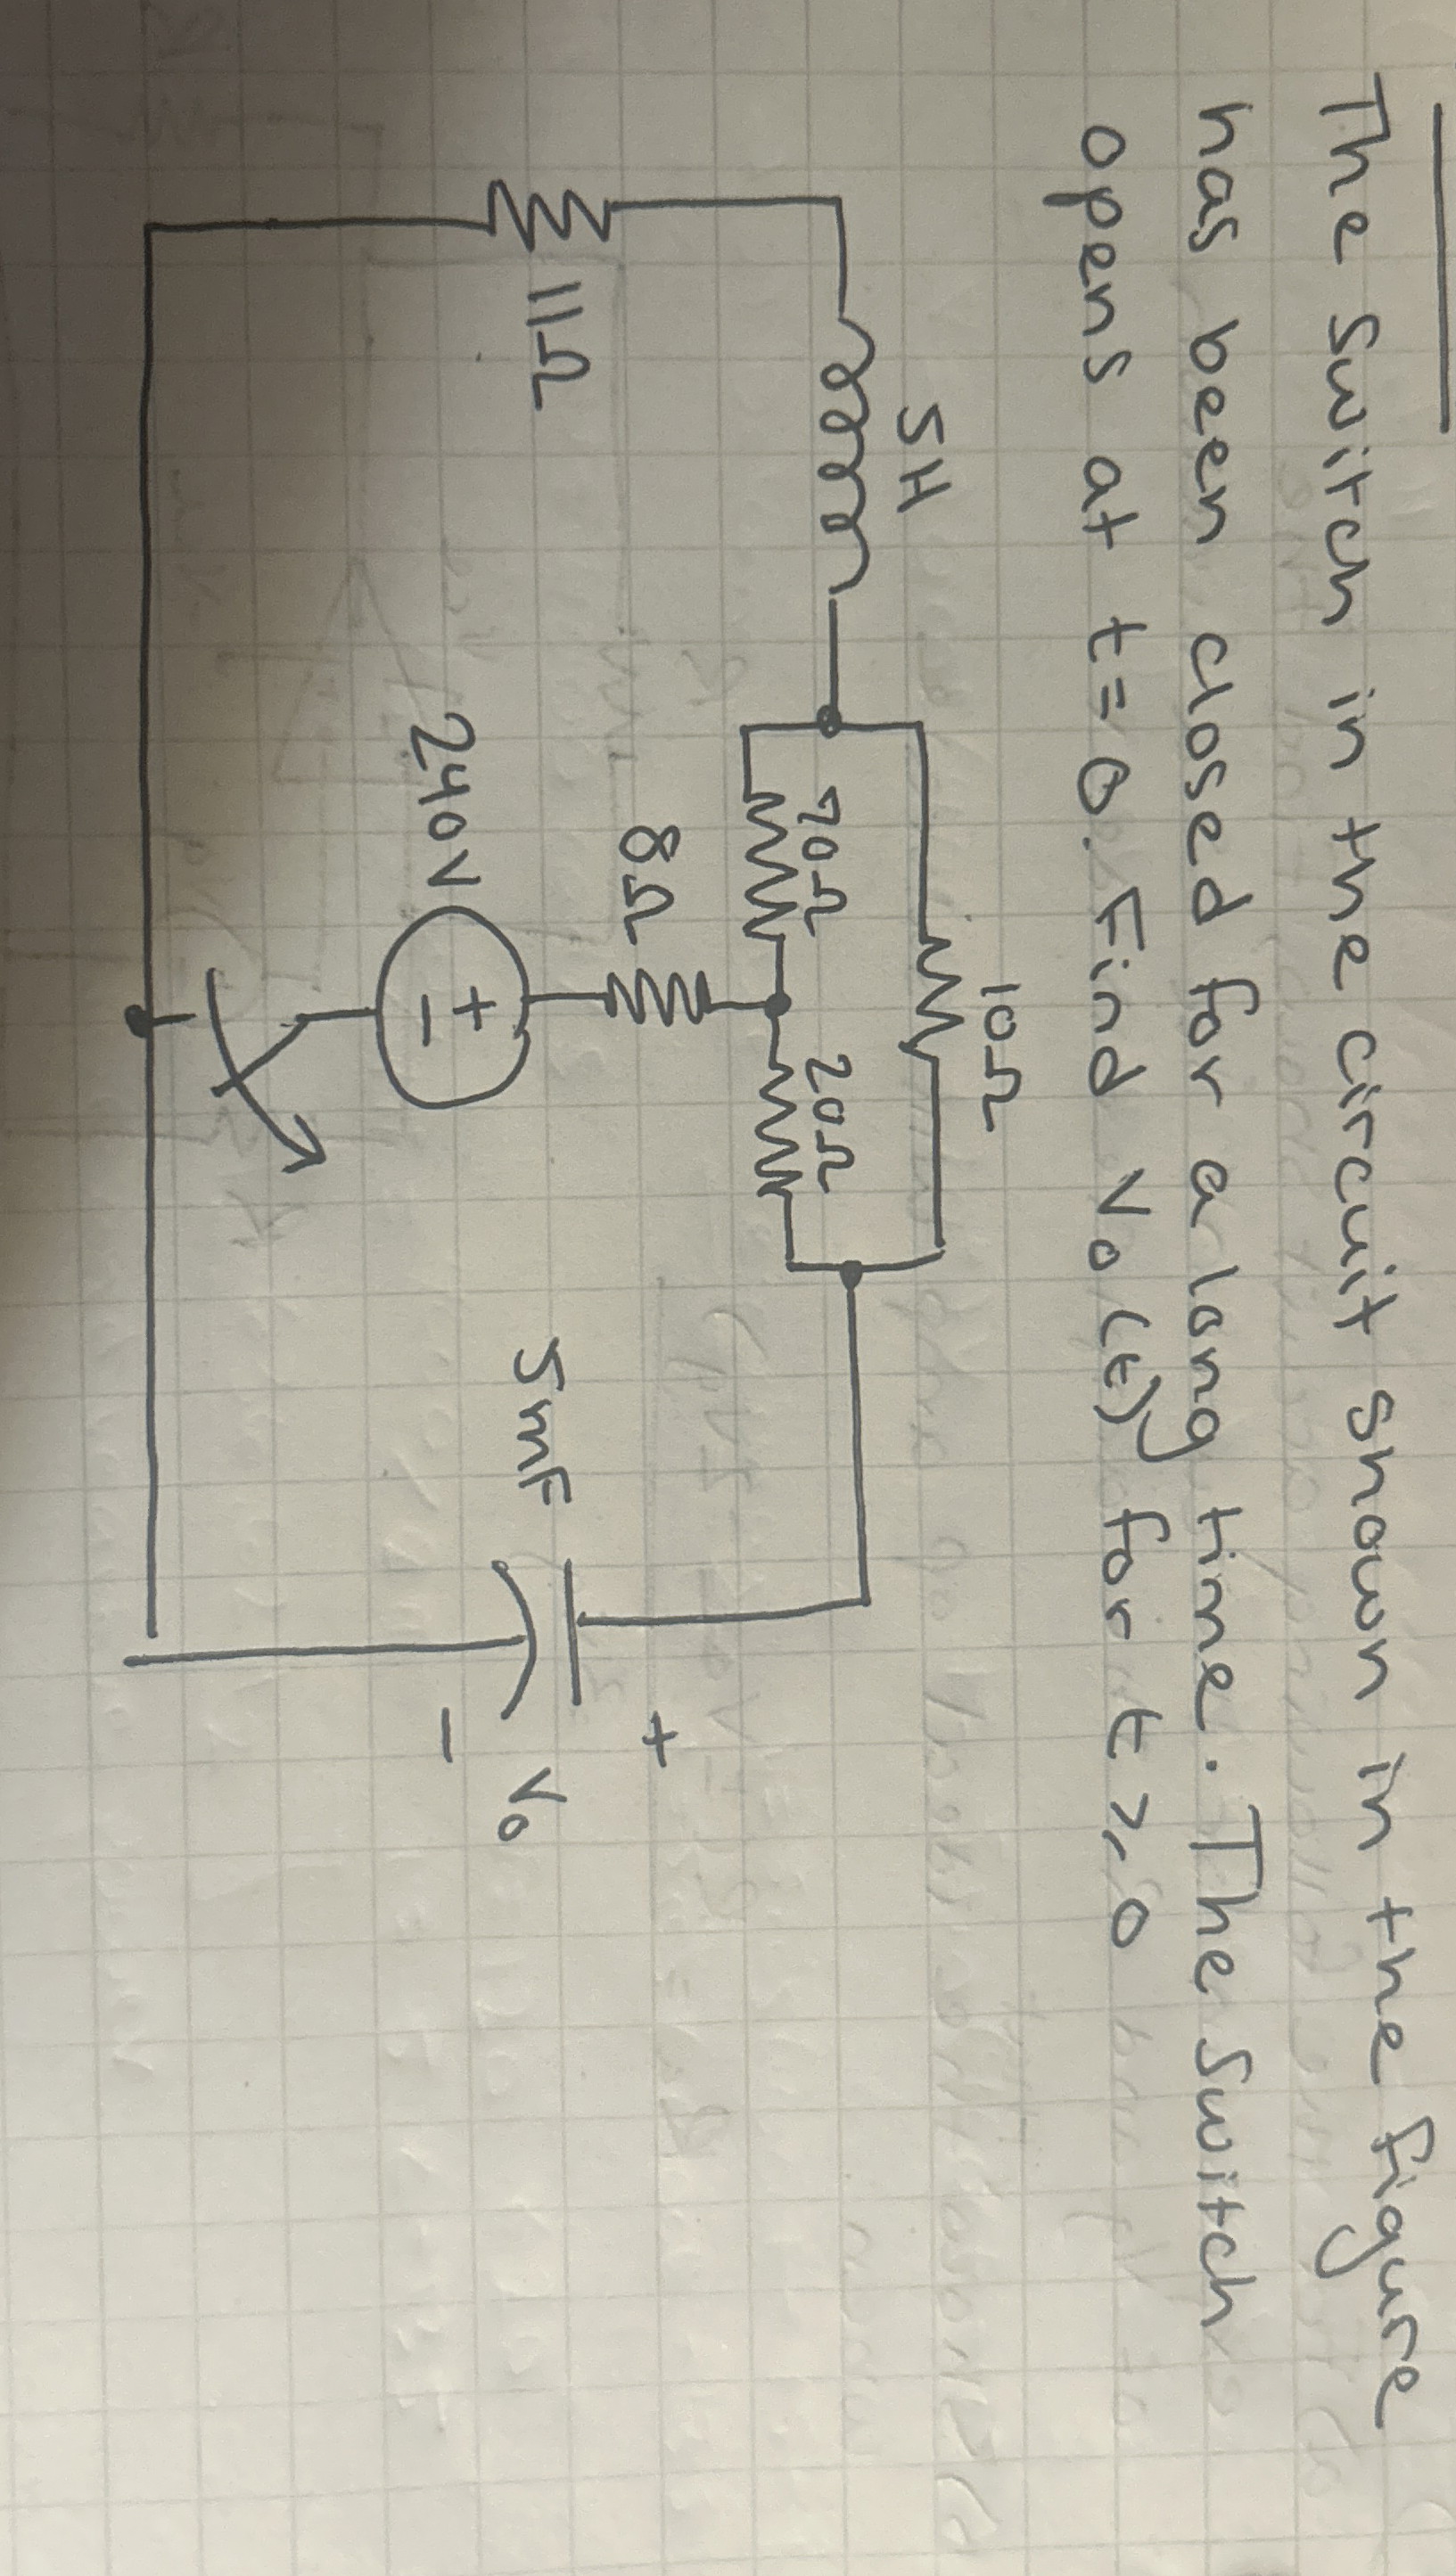 The switch in the circuit shown in the figure
has been closed for a long time. The switch
opens at t=0. Find Vo(t) for t≥0
10Ω
5H
70Ω
20Ω
8Ω
11Ω
240V
+
-
5mF
+
Vo
-